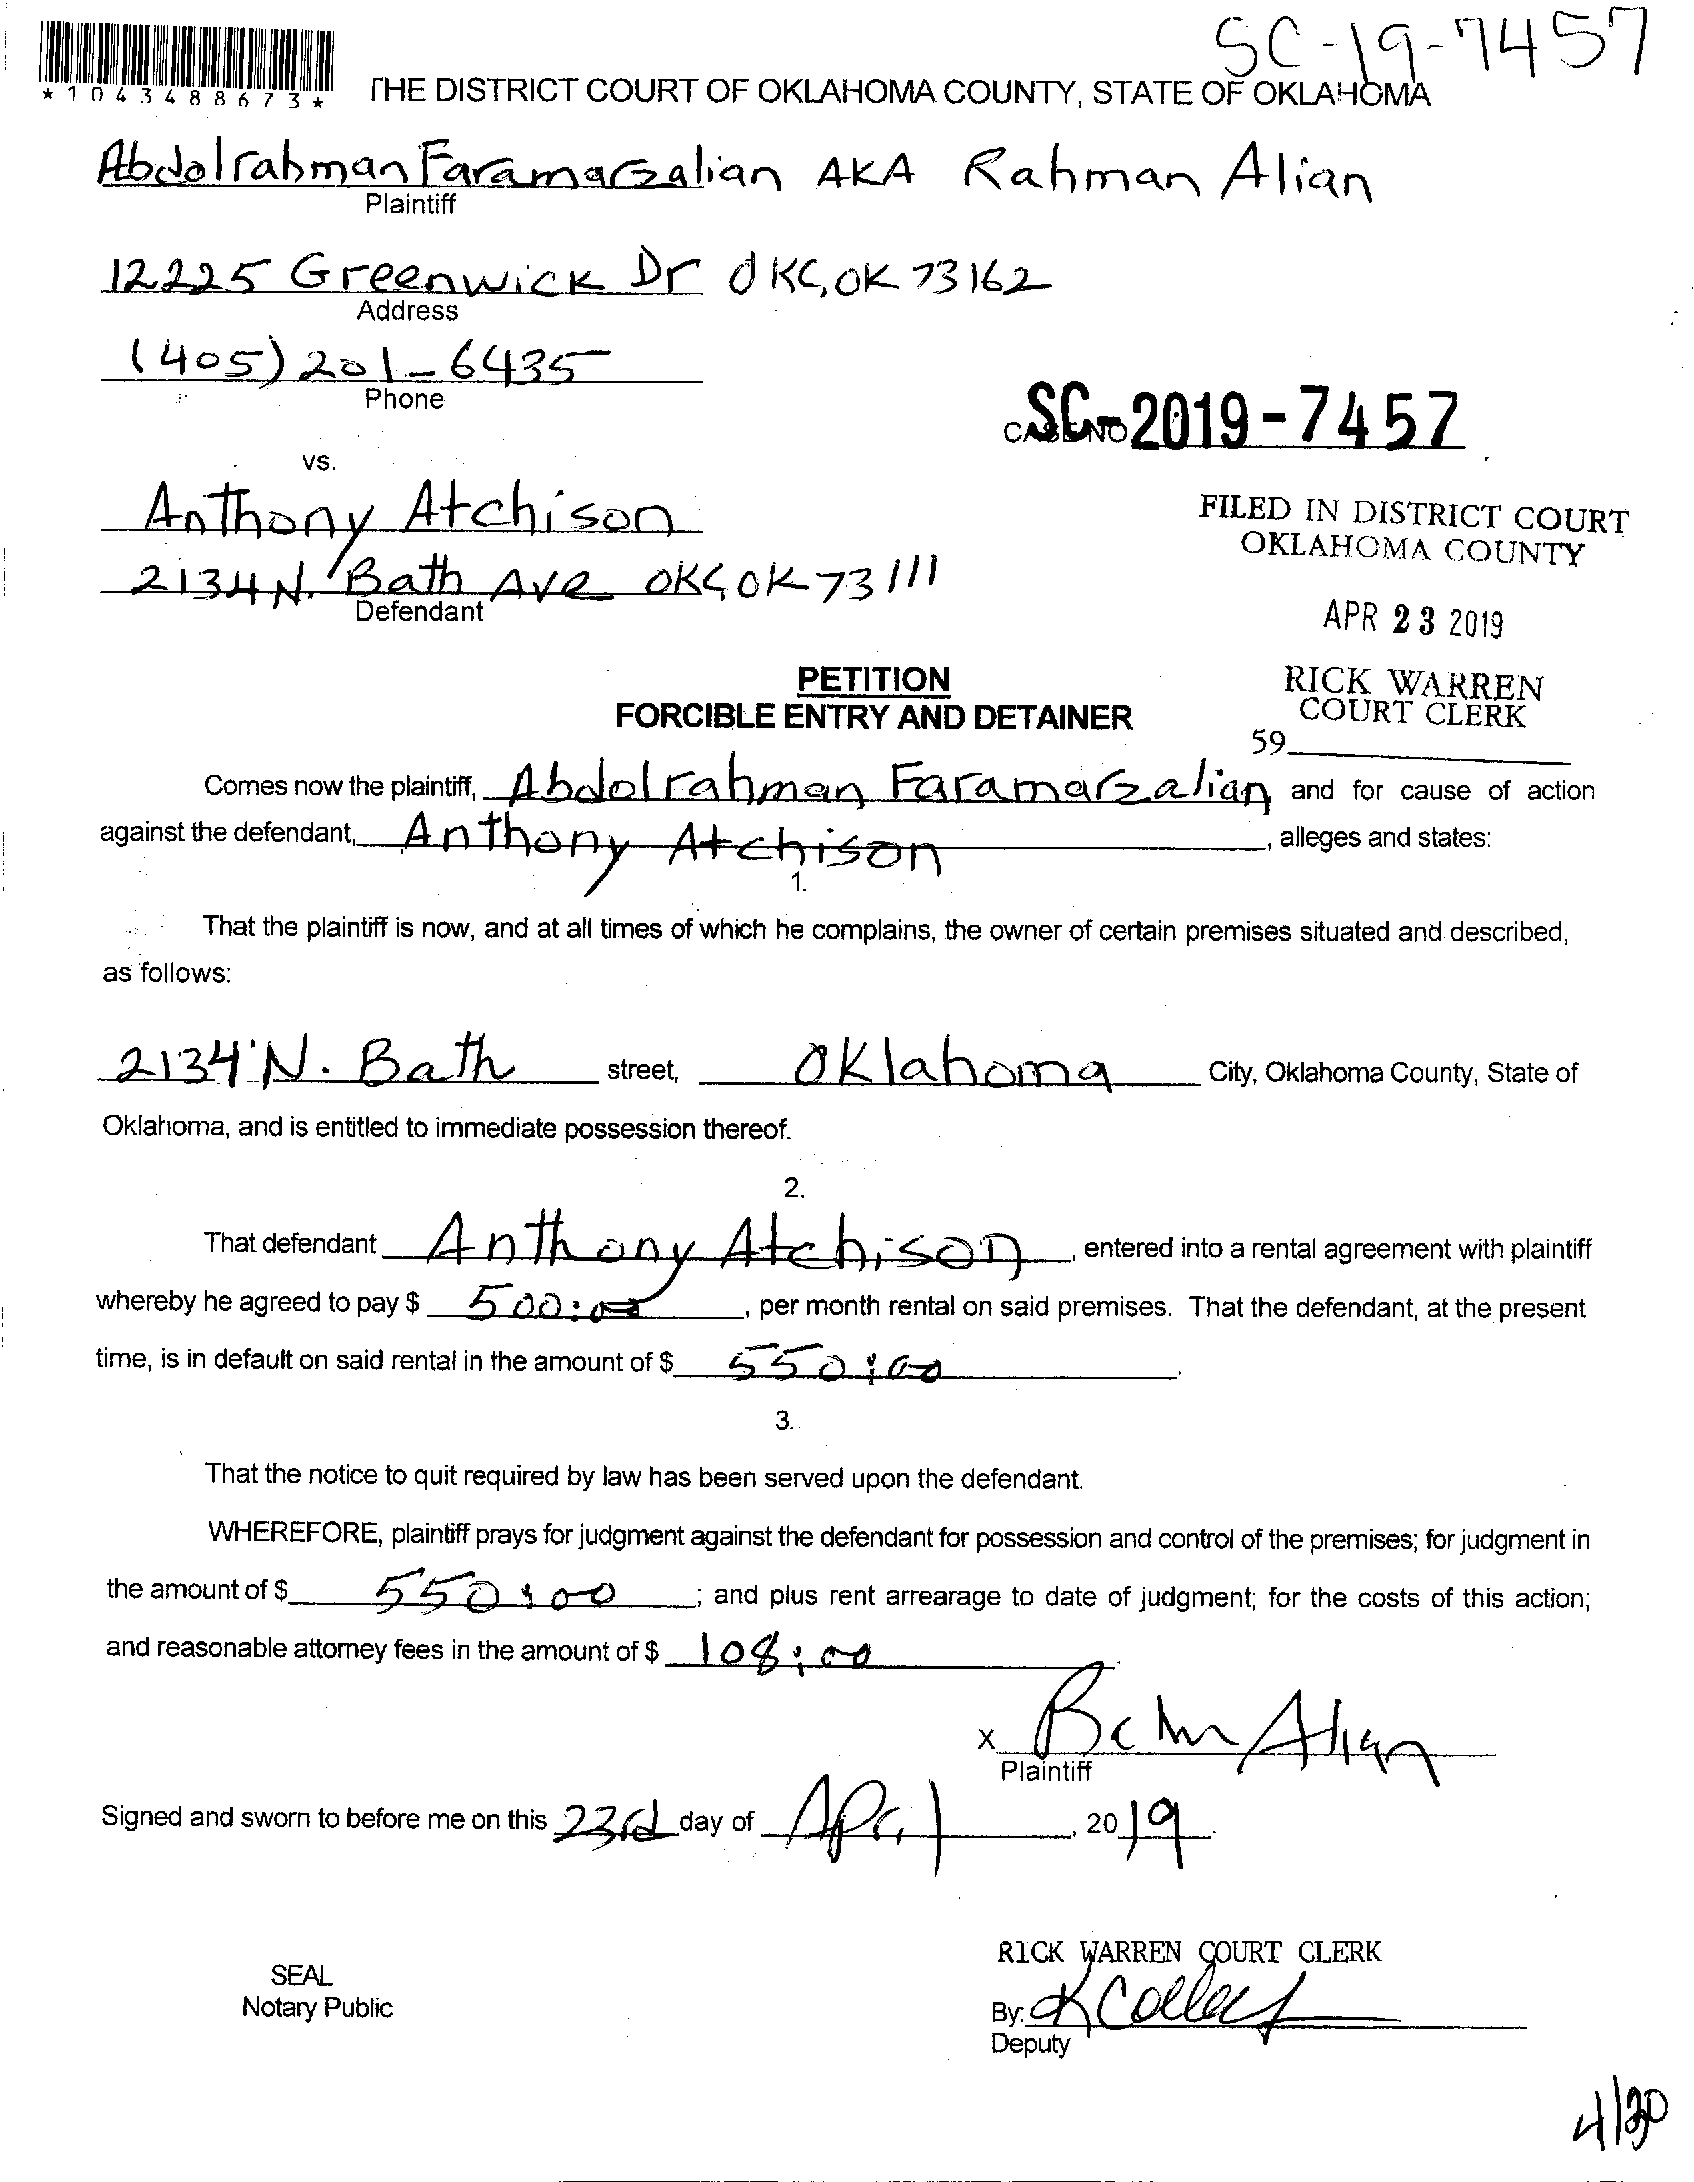 SC-19-7457
*1043488673*
THE DISTRICT COURT OF OKLAHOMA COUNTY, STATE OF OKLAHOMA
Abdolrahman Faramarzalian AKA Rahman Alian
Plaintiff
12225 Greenwick Dr OKC, OK 73162
Address
(405) 201-6435
Phone
CASE NO
SC-2019-7457
vs.
Anthony Atchison
2134 N. Bath Ave OKC, OK 73111
Defendant
FILED IN DISTRICT COURT
OKLAHOMA COUNTY
APR 23 2019
RICK WARREN
COURT CLERK
59
PETITION
FORCIBLE ENTRY AND DETAINER
Comes now the plaintiff, Abdolrahman Faramarzalian and for cause of action
against the defendant, Anthony Atchison, alleges and states:
1.
That the plaintiff is now, and at all times of which he complains, the owner of certain premises situated and described,
as follows:
2134 N. Bath street, Oklahoma City, Oklahoma County, State of
Oklahoma, and is entitled to immediate possession thereof.
2.
That defendant Anthony Atchison, entered into a rental agreement with plaintiff
whereby he agreed to pay $ 500:00, per month rental on said premises. That the defendant, at the present
time, is in default on said rental in the amount of $ 550:00.
3.
That the notice to quit required by law has been served upon the defendant.
WHEREFORE, plaintiff prays for judgment against the defendant for possession and control of the premises; for judgment in
the amount of $ 550:00; and plus rent arrearage to date of judgment; for the costs of this action;
and reasonable attorney fees in the amount of $ 108:00.
x Alian
Plaintiff
Signed and sworn to before me on this 23rd day of April, 2019.
RICK WARREN COURT CLERK
SEAL
Notary Public
By:
Deputy
4/30